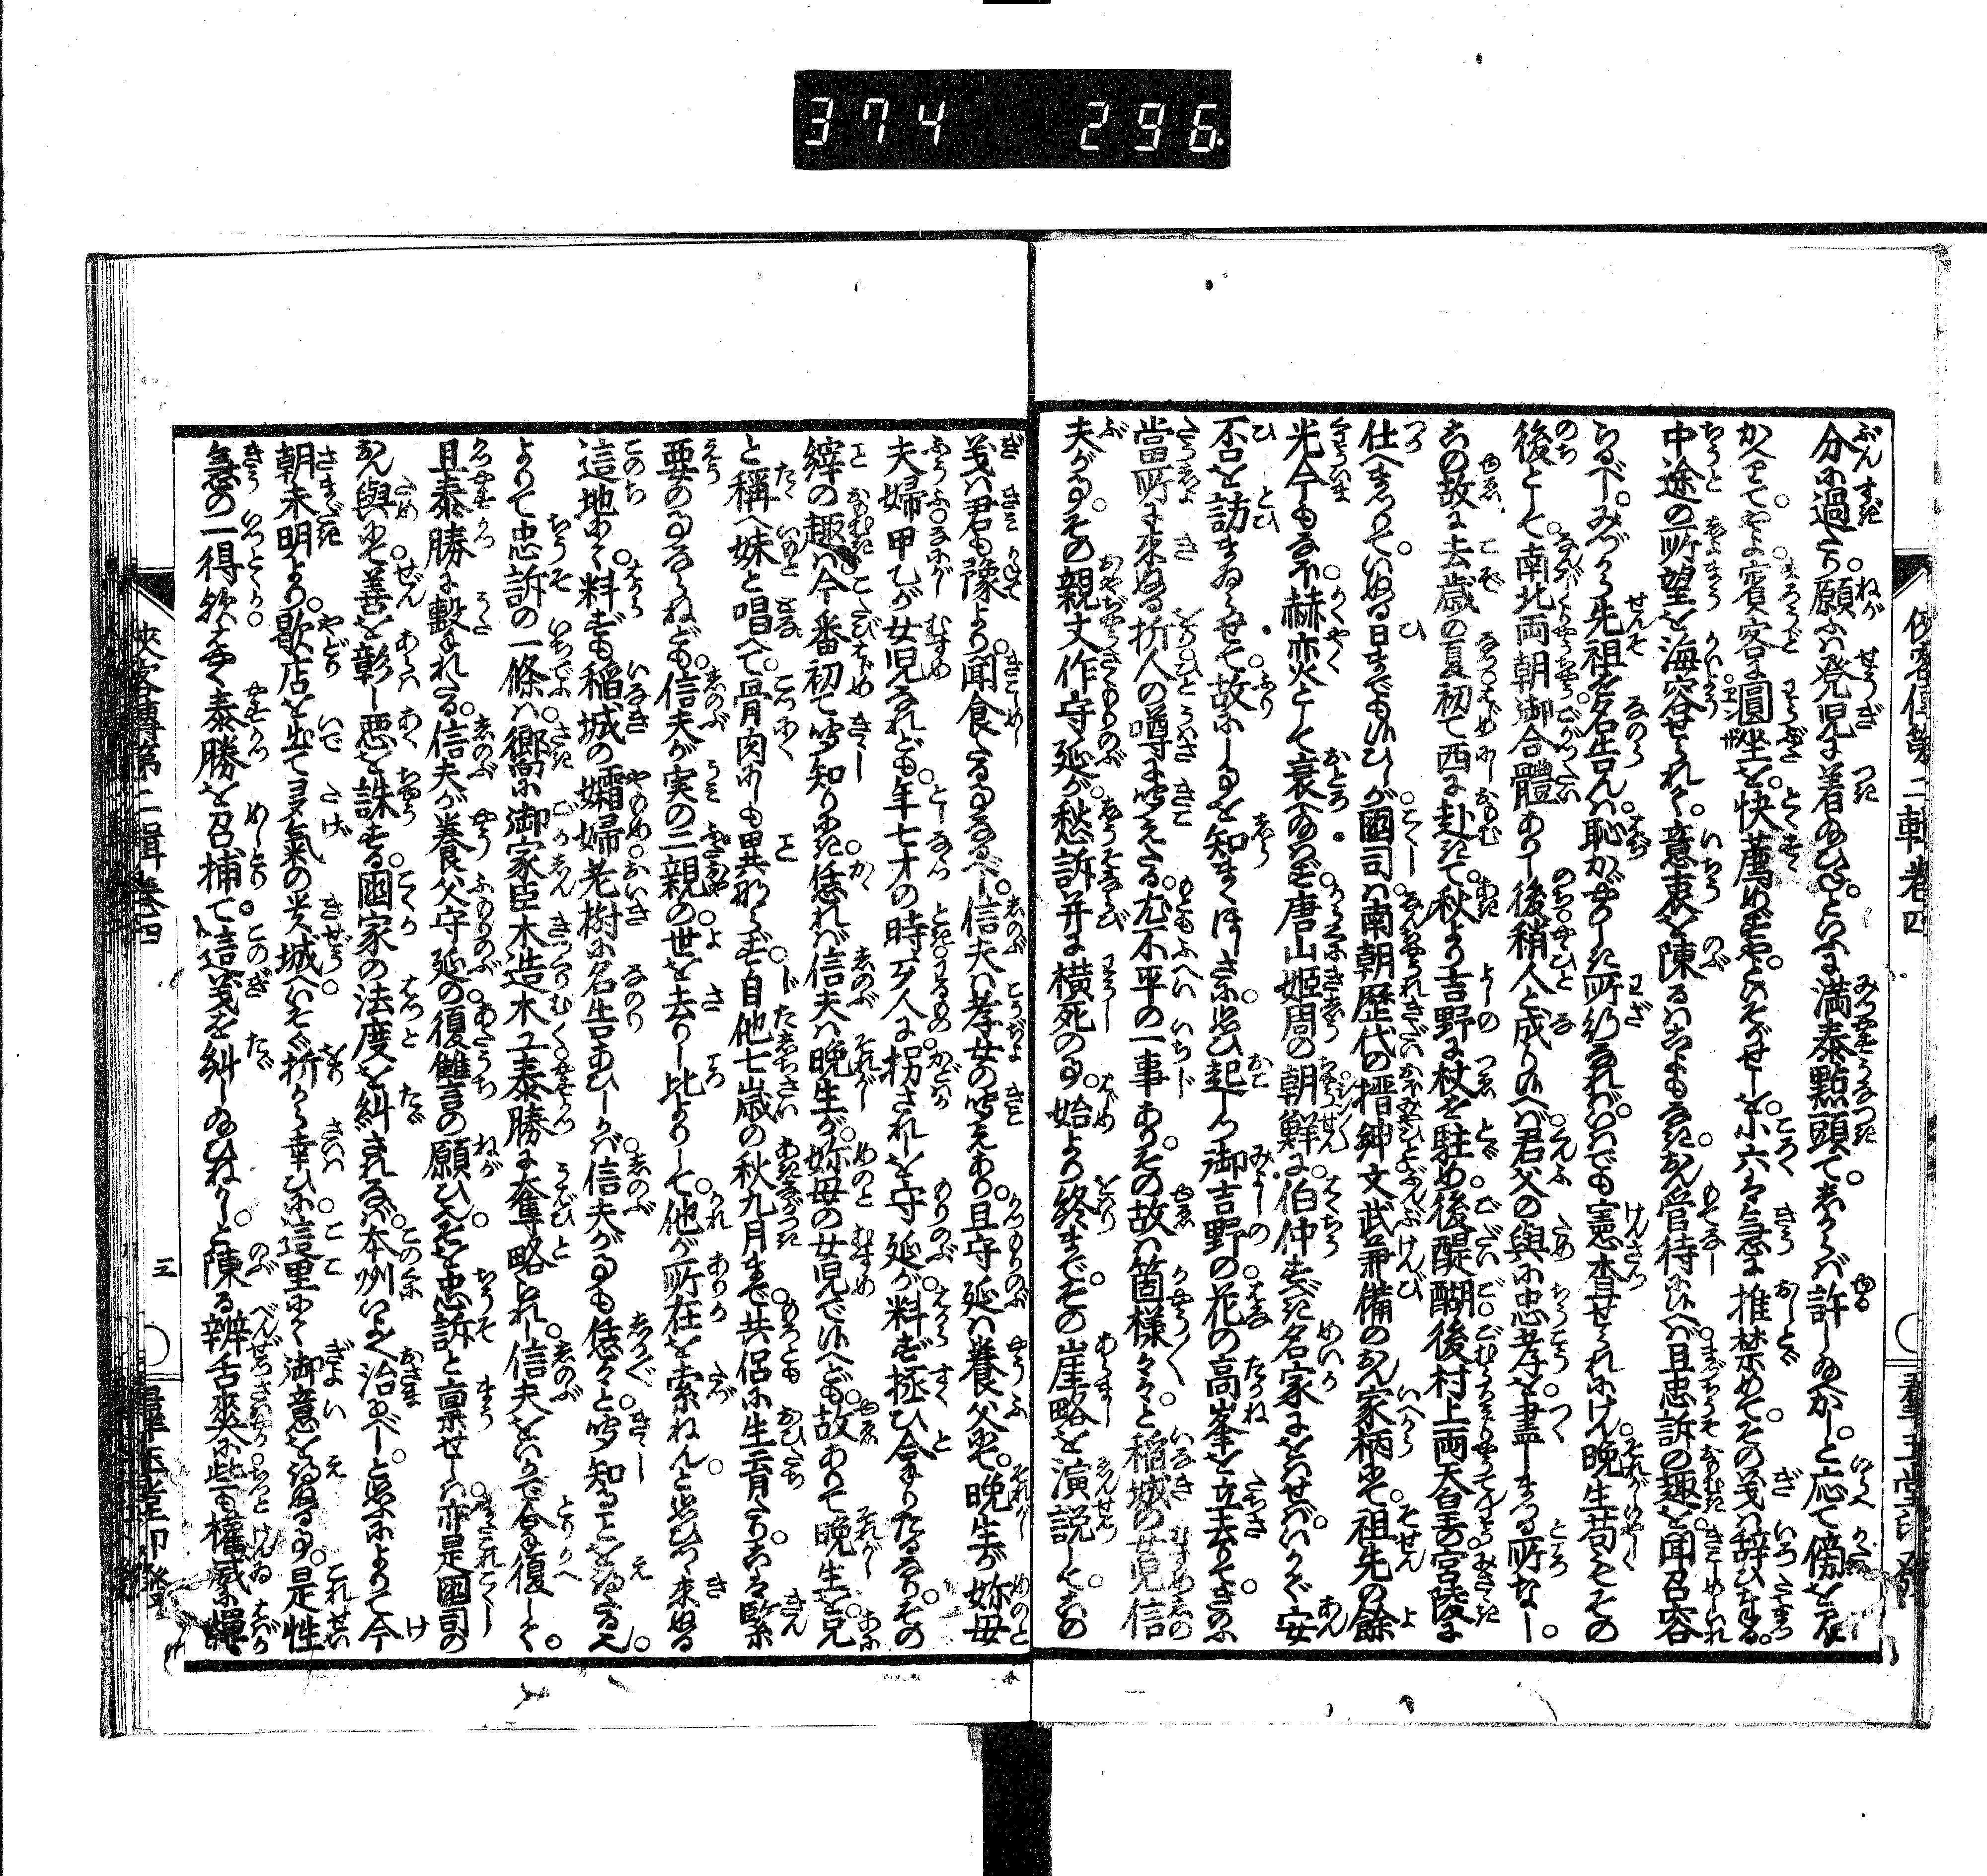 374 296
俠客傳第二輯巻四
分に過たり。願ふは発児に着給ひね。といふに満泰點頭て。しからば許し給へかし。と応て傍を見
かへりて。やよ賓客に圓坐を。快薦めずや。といそがせしを。小六は急に推禁めて。その義は辞ひまつる。
中途の所望を海容せられて。意衷を陳るはこよもなき管待に侍へ。且忠訴の趣を聞召容
らるべし。みづから先祖を名告んは恥かゞやかしき所行なれば。いはでも憲査せられにけん。晩生苟もその
後として。南北両朝御合體ありし後。稍人と成り侍へば。君父の與に忠孝を盡しまつる所なし。
この故に去歳の夏初て西に赴きて。秋より吉野に杖を駐め。後醍醐後村上両天皇の宮陵に
仕へまつりて。いぬる日までも侍ひしが。國司は南朝歴代の搢紳文武兼備のおん家柄にて。祖先の餘
光今もなほ赫亦として衰へ給はず。唐山姫周の朝鮮に。伯仲すべき名家にをはせば。いかで安
否を訪まゐらせて。故にし事を知まくほしさに。思ひ起しつ御吉野の花の高峯を立去りて。きのふ
當所に来ぬる折。人の噂に聞えたる。尤不平の一事あり。その故は箇様々々と。稲城の女児信
夫が事。その親丈作守延が愁訴并に横死の事。始より終まで。その崖略を演説して。この
義は君も豫より。聞食たる事なるべし。信夫は孝女の聞えあり。且守延は養父にて。晩生が妳母
夫婦甲乙が女児なれども。年七才の時歹人に拐されしを。守延が料ず拯ひ令まゐりたるなり。その
縡の趣は今番初て聞知りにき。恁れば信夫は晩生が。妳母の女児で侍へども。故ありて晩生を兄
と稱へ妹と唱へて。骨肉にしも異ならず。自他七歳の秋九月まで共侶に生育へり。こは緊
要の事ならねども。信夫が実の二親の世を去りし比よりして。他が所在を索ねんと思ひつゝ来ぬる
這地にて。料ずも稲城の孀婦老樹に名告あひしかば。信夫が事も恁々と。聞知ることを得たる也。
よりて忠訴の一條は。嚮に御家臣木造木工泰勝に奪略られし信夫をいかで令復して。
且泰勝に轂れたる。信夫が養父守延の復讐言の願ひさへを。忠訴と稟せしは亦是國司の
おん與にて。善を彰し悪を誅する國家の法度を糾されなば。本州いよゝ治るべし。と思ふによりて今
朝未明より。歇店を出て多氣の光城へいそぐ折から幸ひに這里にて御意を得ぬる事。是性
急の一得歟。疾く泰勝を召捕て。這義を糾し給ひねかし。と陳る辨舌爽に些も權威に憚
俠客傳第二輯巻四
三